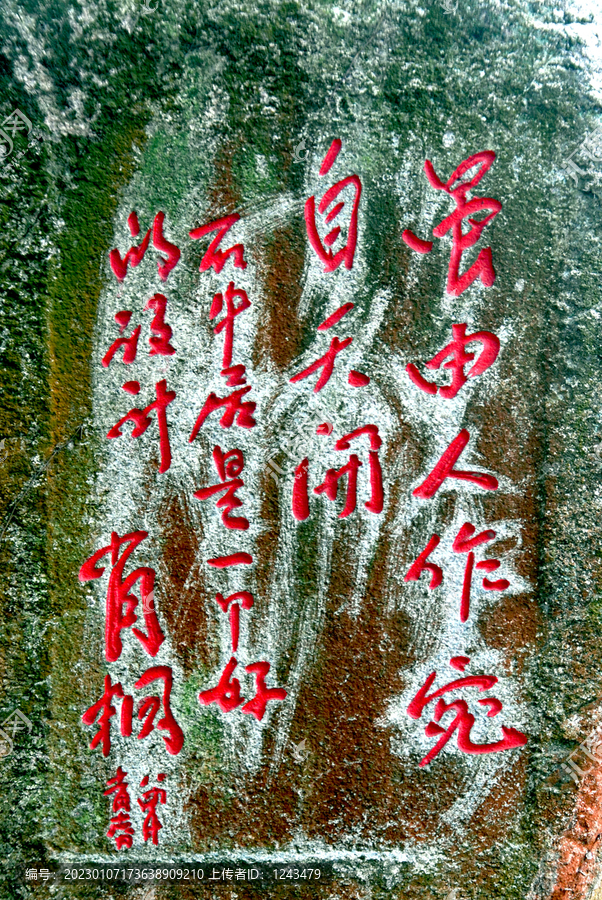 虽由人作宛
自天开
石中居是一个好
的设计
肖桐
编号：20230107173638909210 上传者ID：1243479